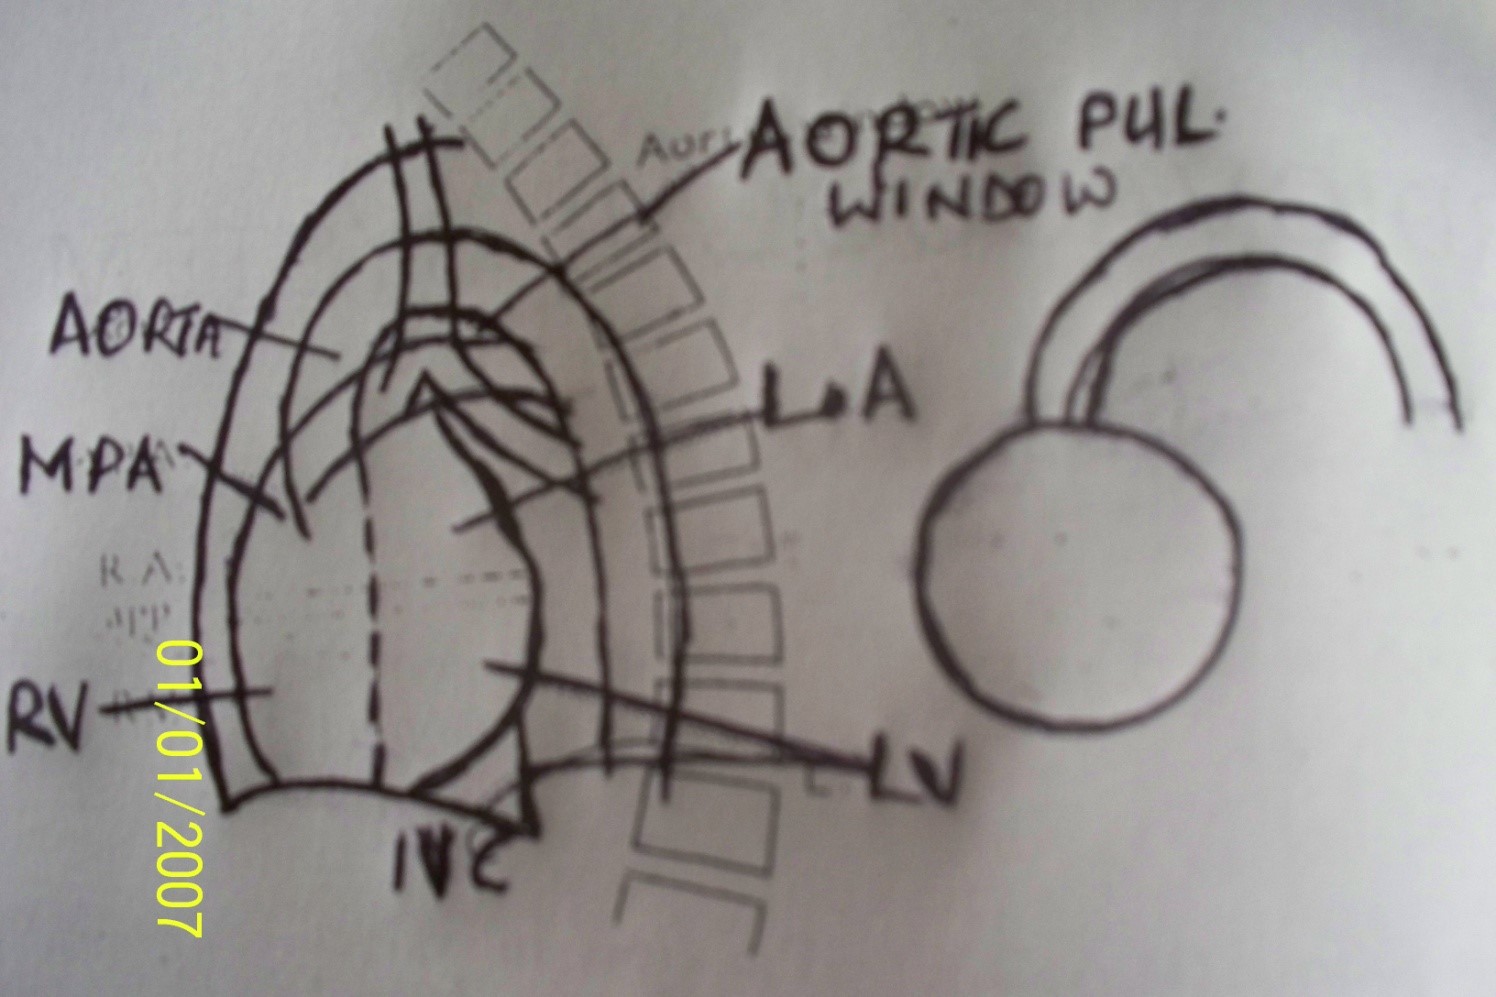 AORTIC PUL.
WINDOW
AORTA
L.A
MPA
R.A.
RV
LV
IVC
01/01/2007